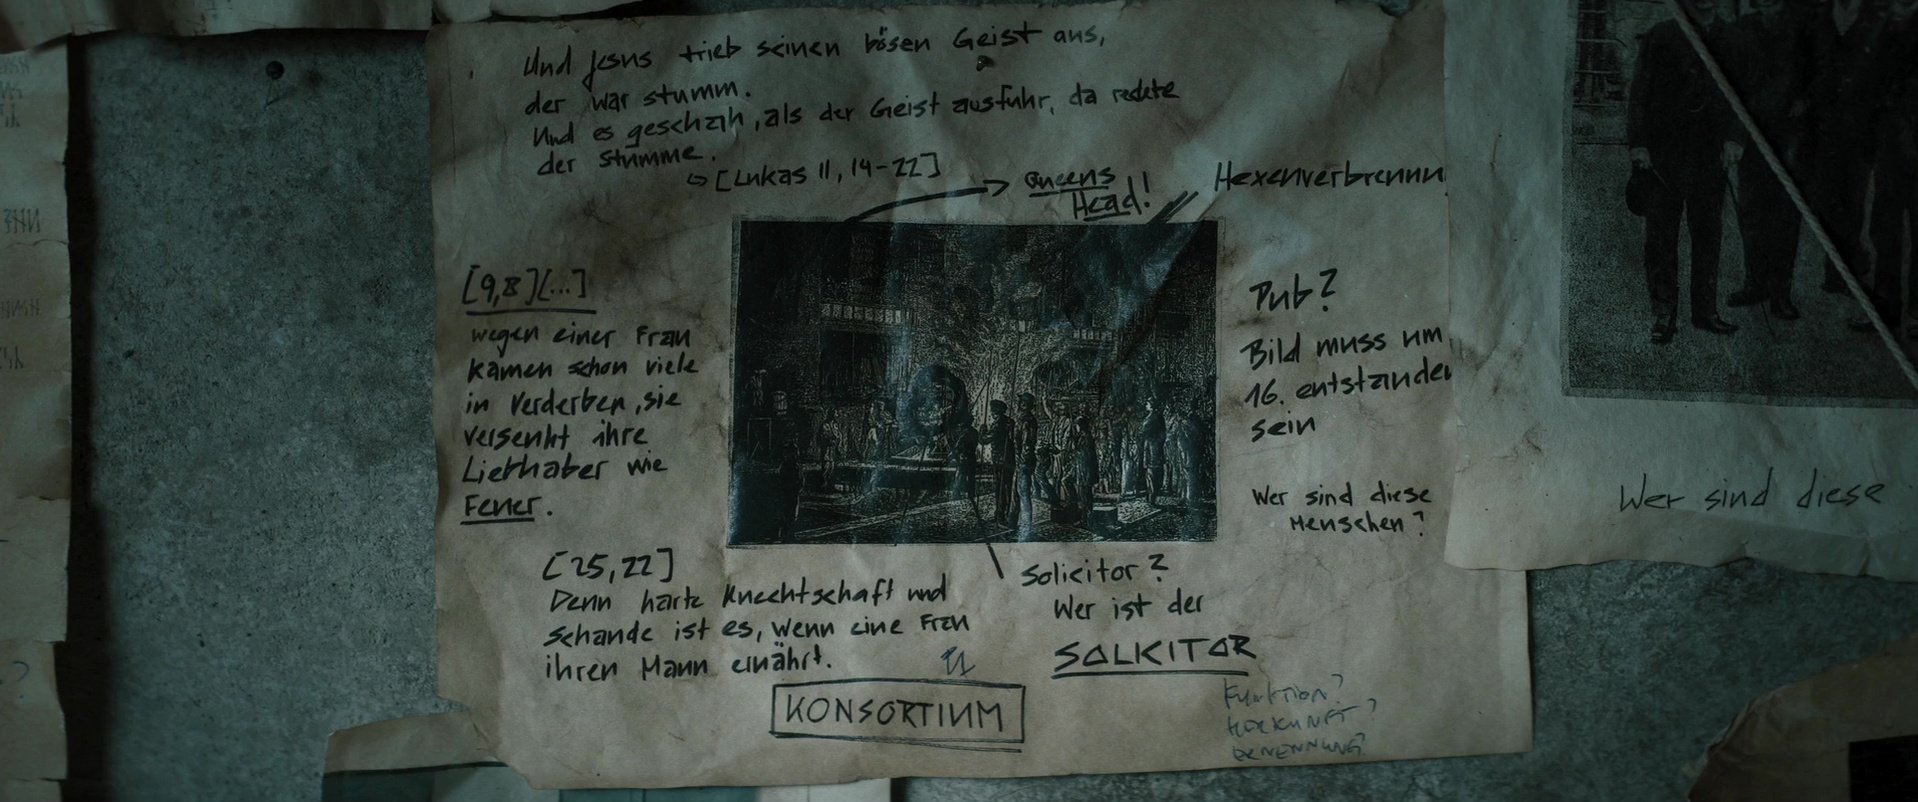 Und Jesus trieb seinen bösen Geist aus,
der war stumm.
Und es geschah, als der Geist ausfuhr, da redete
der stumme.
[Lukas 11, 14-22]
Queens
Head!
Hexenverbrennun
[9,8][...]
wegen einer Frau
kamen schon viele
in Verderben, sie
versenkt ihre
Liebhaber wie
Feuer.
Pub?
Bild muss um
16. entstanden
sein
Wer sind diese
Menschen?
Wer sind diese
[25,22]
Denn harte Knechtschaft und
Schande ist es, wenn eine Frau
ihren Mann ernährt.
Solicitor?
Wer ist der
SOLICITOR
KONSORTIUM
Funktion?
HERKUNFT?
BENENNUNG?